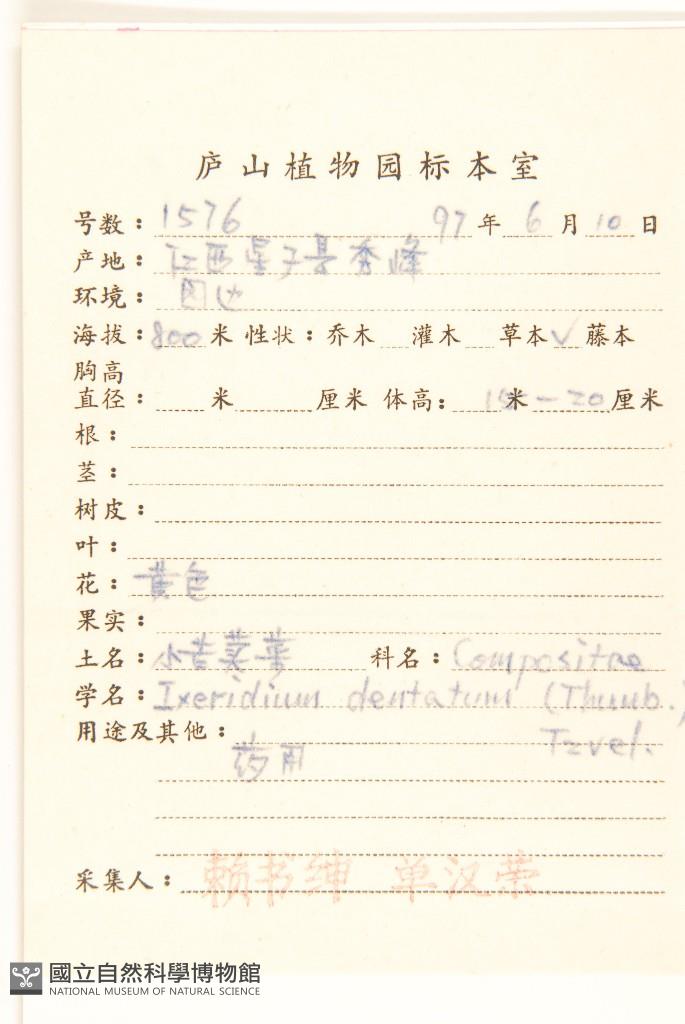 庐山植物园标本室
号数：1576 97年6月10日
产地：江西星子县秀峰
环境：
海拔：800米 性状：乔木 灌木 草本√ 藤本
胸高
直径： 米 厘米 体高： 米15－20厘米
根：
茎：
树皮：
叶：
花：黄色
果实：
土名：小苦荬 科名：Compositae
学名：Ixeridium dentatum (Thunb.)
用途及其他： Tzvel.
药用
采集人：赖书绅 单汉荣
國立自然科學博物館
NATIONAL MUSEUM OF NATURAL SCIENCE